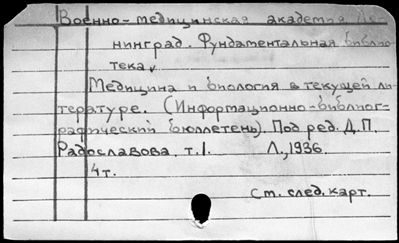 Военно-медицинская академия Ле-
нинград. Фундаментальная библио-
тека.
Медицина и биология в текущей ли-
тературе. (Информационно-библиог-
рафический бюллетень). Под ред. Д.П.
Радославова. т.1. Л., 1936.
4т.
См. след. карт.